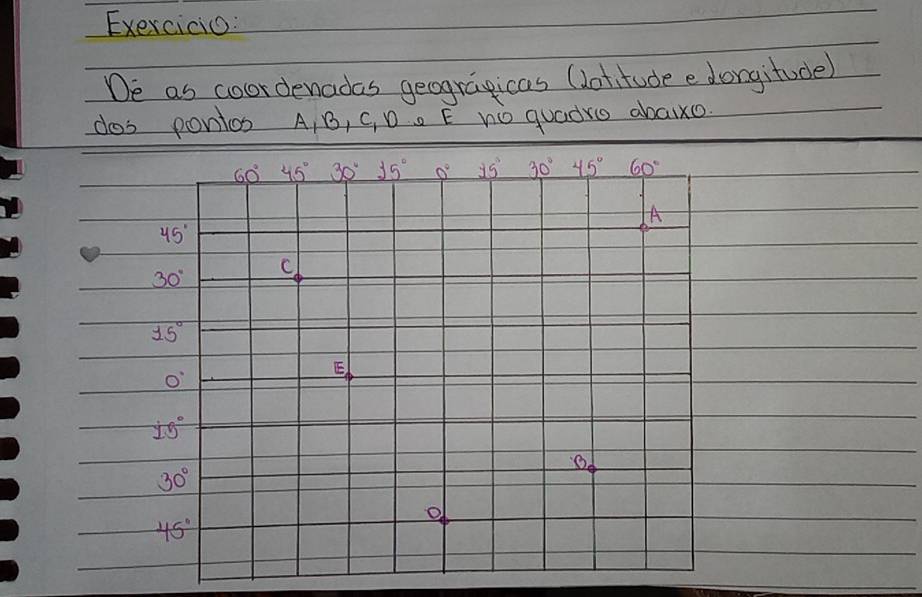 Exercicio:
Dê as coordenadas geográgicas (latitude e longitude)
dos pontos A, B, C, D e E no quadro abaixo.
60° 45° 30° 15° 0° 15° 30° 45° 60°
A
45°
C
30°
15°
E
0°
15°
B
30°
D
45°